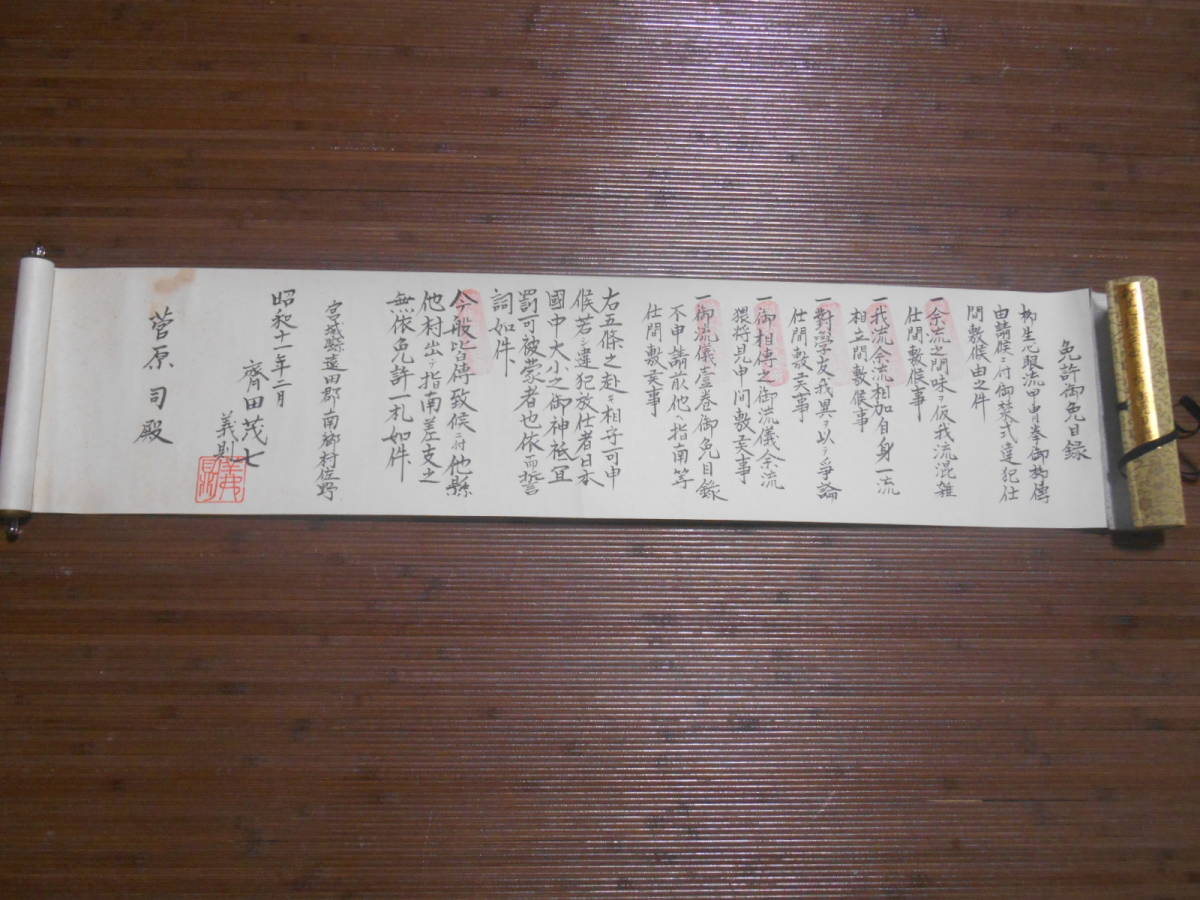 免許御免目録
柳生心眼流甲冑拳御相傳
由請候ニ付御菜式違犯仕
間敷候由之件
一余流之間味ヲ仮我流混雑
仕間敷候事
一我流余流相加自身一流
相立間敷候事
一對學友我異ヲ以テ爭論
仕間敷叓事
一御相傳之御流儀余流
猥将見申間敷叓事
一御流儀壹卷御免目録
不申請前他ヘ指南等
仕間敷叓事
右五條之赴キ相守可申
候若シ違犯放仕者日本
國中大小之御神祇冝
罰可被蒙者也依而誓
詞如件
今般皆傳致候ニ付他縣
他村出テ指南差支之
無依免許一札如件
宮城縣遠田郡南郷村
昭和十一年二月
齊田茂七
義則
菅原司殿